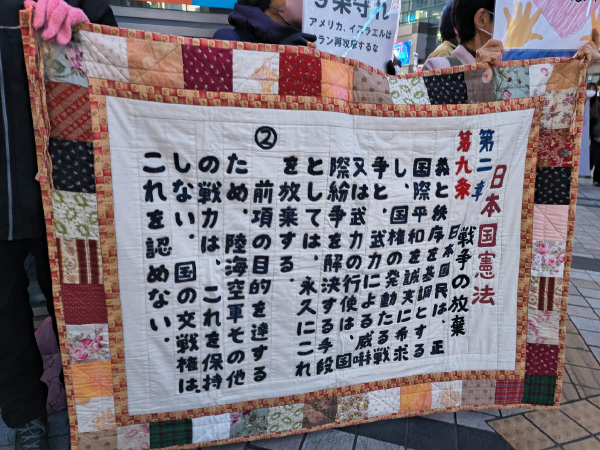 条守れ
アメリカ、イスラエルは
ラン再攻撃するな
日本国憲法
第二章 戦争の放棄
第九条 日本国民は、正
義と秩序を基調とする
国際平和を誠実に希求
し、国権の発動たる戦
争と、武力による威嚇
又は武力の行使は、国
際紛争を解決する手段
としては、永久にこれ
を放棄する。
② 前項の目的を達する
ため、陸海空軍その他
の戦力は、これを保持
しない。国の交戦権は、
これを認めない。